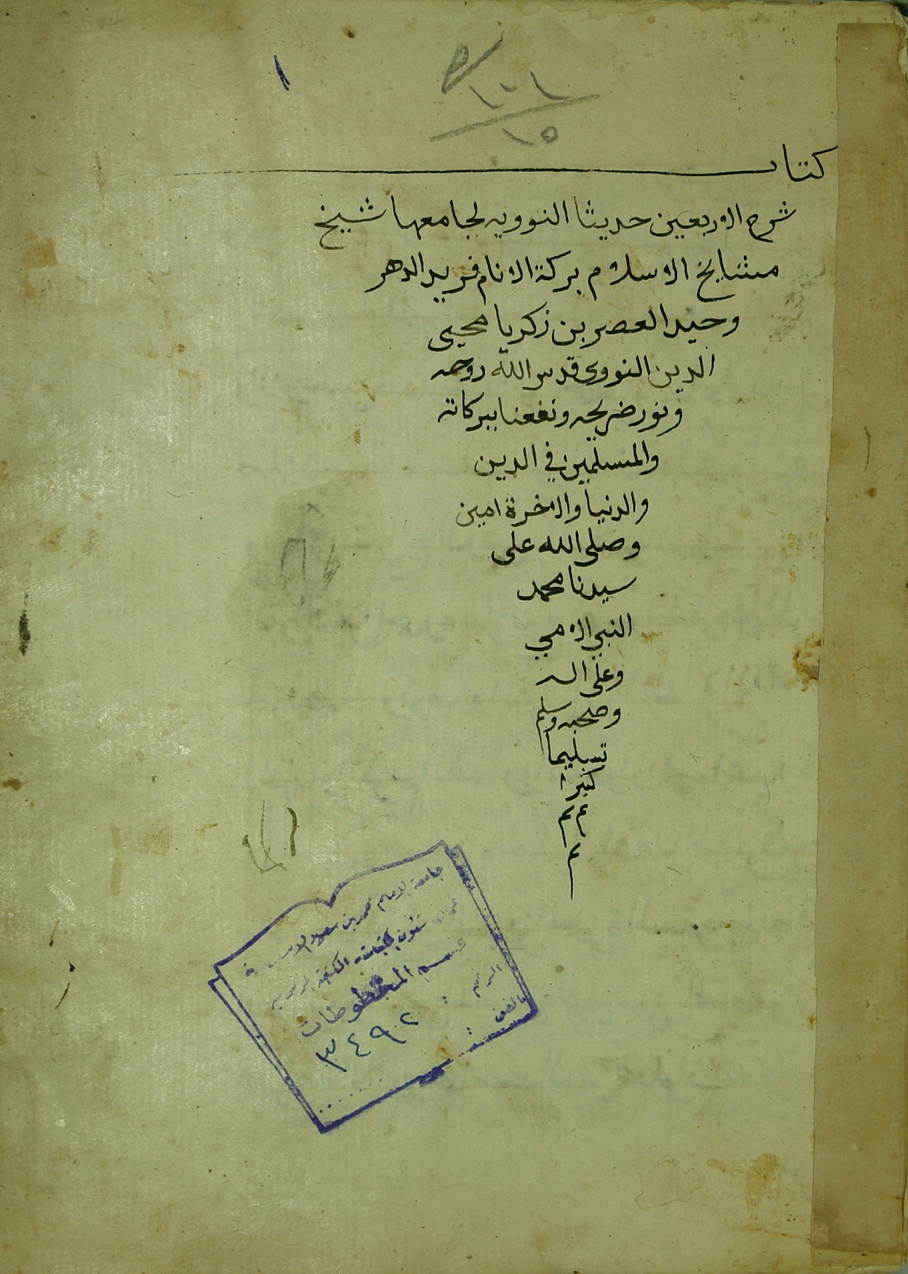 ١٠١
١٥
كتاب
شرح الاربعين حديثا النوويه لجامعها شيخ
مشايخ الاسلام بركة الانام فريد الدهر
وحيد العصر بن زكريا محيى
الدين النووى قدس الله روحه
ونور ضريحه ونفعنا ببركاته
والمسلمين في الدين
والدنيا والاخرة امين
وصلى الله على
سيدنا محمد
النبي الامي
وعلى اله
وصحبه وسلم
تسليما
كثيرا
م م
م
جامعة الامام محمد بن سعود الاسلامية
عمادة شئون المكتبات المكتبة المركزية
قسم المخطوطات
الرقم : ٣٤٩٢
الفن :